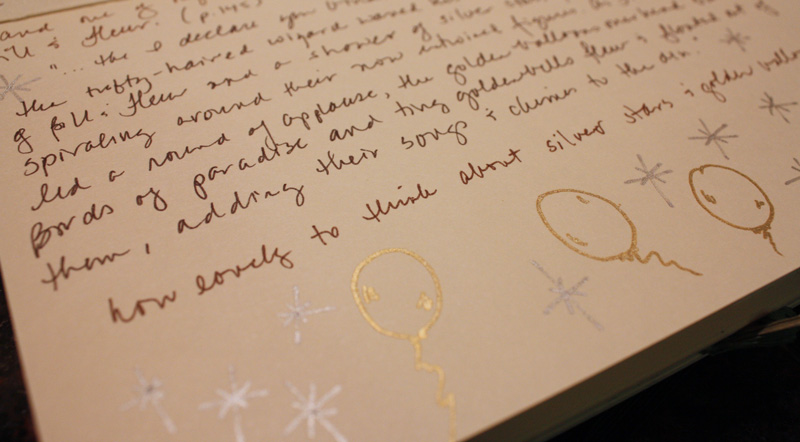 and one of
Bill & Fleur. (p. 145)
"... the I declare you
the tufty-haired wizard waved
of Bill & Fleur and a shower of silver stars
spiraling around their now entwined figures. As
led a round of applause, the golden balloons overhead
Birds of paradise and tiny golden bells flew & floated out of
them, adding their songs & chimes to the din."
how lovely to think about silver stars & golden balloons